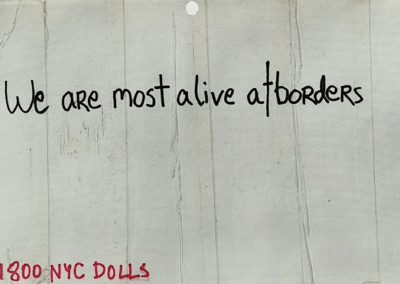 We are most alive at borders
1800 NYC DOLLS